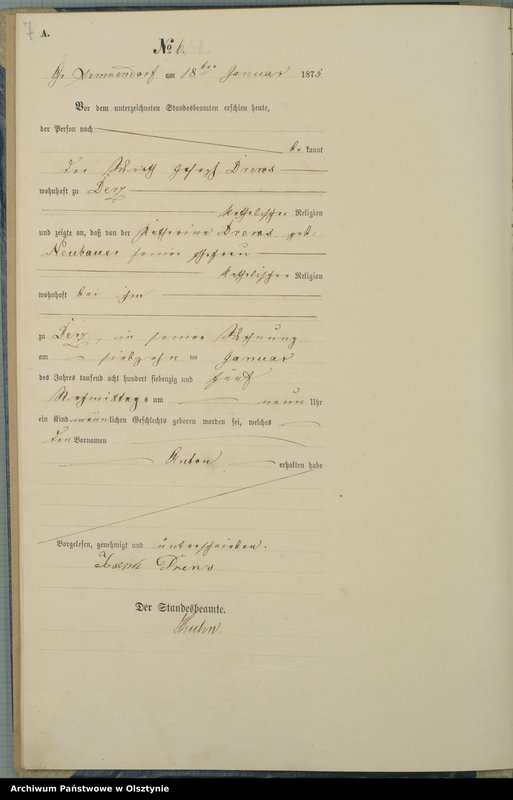 7
A.
No 6.
Gr. Lemkendorf am 18ten Januar 1875
Vor dem unterzeichneten Standesbeamten erschien heute,
der Person nach
be kannt
der Wirth Joseph Drews
wohnhaft zu Derz
katholischer Religion
und zeigte an, daß von der Katharina Drews geb:
Neubauer seiner Ehefrau
katholischer Religion
wohnhaft bei ihm
zu Derz, in seiner Wohnung
am siebzehn ten Januar
des Jahres tausend acht hundert siebenzig und fünf
Nachmittags um neun Uhr
ein Kind männlichen Geschlechts geboren worden sei, welches
den Vornamen
Anton erhalten habe
Vorgelesen, genehmigt und unterschrieben.
Joseph Drews
Der Standesbeamte.
Archiwum Państwowe w Olsztynie